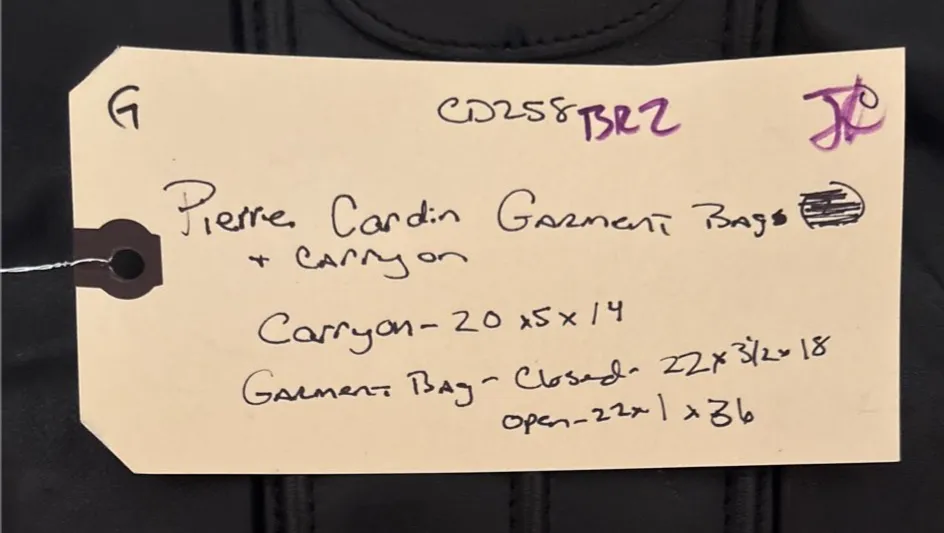 G CD258 BRZ JC
Pierre Cardin Garment Bags
+ Carryon
Carryon - 20 x5 x 14
Garment Bag - Closed - 22 x 3 1/2 x 18
open - 22 x 1 x 36